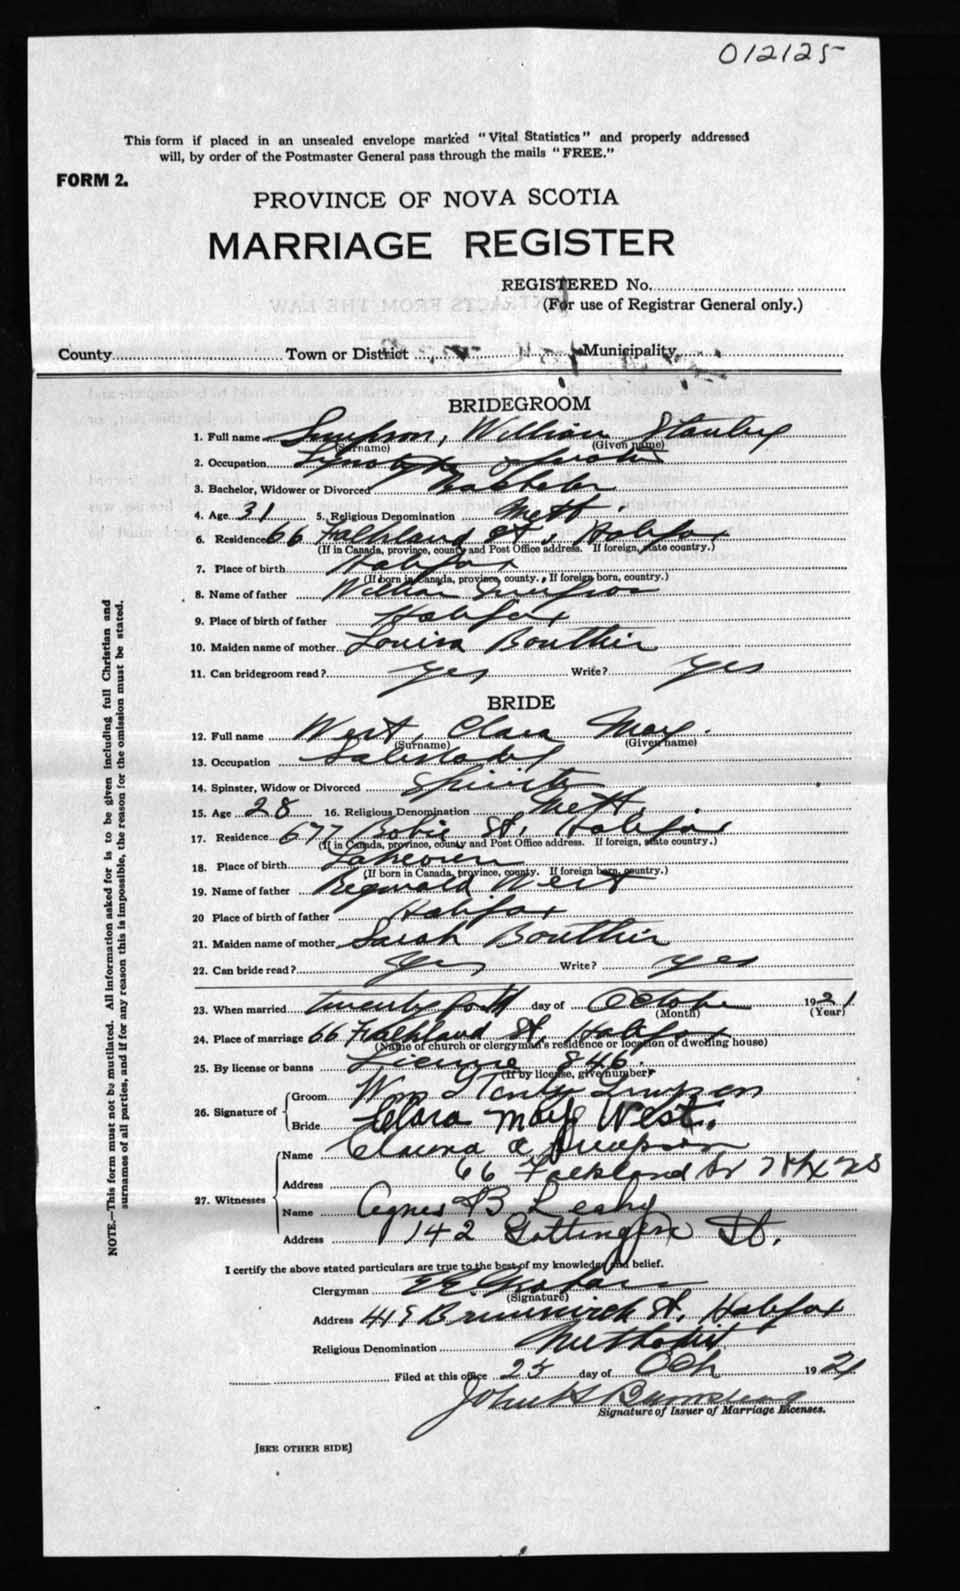 012125
This form if placed in an unsealed envelope marked "Vital Statistics" and properly addressed
will, by order of the Postmaster General pass through the mails "FREE."
FORM 2.
PROVINCE OF NOVA SCOTIA
MARRIAGE REGISTER
REGISTERED No.
(For use of Registrar General only.)
County Town or District Municipality
BRIDEGROOM
1. Full name Simpson, William Stanley
(Surname) (Given name)
2. Occupation
3. Bachelor, Widower or Divorced Bachelor
4. Age 31 5. Religious Denomination Meth.
6. Residence 66 Falkland St, Halifax
(If in Canada, province, county and Post Office address. If foreign, state country.)
7. Place of birth Halifax
(If born in Canada, province, county. If foreign born, country.)
8. Name of father William Simpson
9. Place of birth of father Halifax
10. Maiden name of mother Louisa Bouthier
11. Can bridegroom read? yes Write? yes
BRIDE
12. Full name West, Clara May.
(Surname) (Given name)
13. Occupation Saleslady
14. Spinster, Widow or Divorced Spinster
15. Age 28 16. Religious Denomination Meth.
17. Residence 677 Robie St, Halifax
(If in Canada, province, county and Post Office address. If foreign, state country.)
18. Place of birth
(If born in Canada, province, county. If foreign born, country.)
19. Name of father Reginald West
20 Place of birth of father Halifax
21. Maiden name of mother Sarah Bouthier
22. Can bride read? yes Write? yes
23. When married day of October 1921
(Month) (Year)
24. Place of marriage 66 Falkland St, Halifax
(Name of church or clergyman's residence or location of dwelling house)
25. By license or banns License 846.
(If by license, give number)
26. Signature of Groom Wm Stanley Simpson
Bride Clara May West.
27. Witnesses
Name Simpson
Address 66 Falkland St
Name Agnes B Leahy
Address 142 Gottingen St.
I certify the above stated particulars are true to the best of my knowledge and belief.
Clergyman
(Signature)
Address Brunswick St, Halifax
Religious Denomination Methodist
Filed at this office 25 day of Oct 1921
John
Signature of Issuer of Marriage Licenses.
[SEE OTHER SIDE]
NOTE.—This form must not be mutilated. All information asked for is to be given including full Christian and
surnames of all parties, and if for any reason this is impossible, the reason for the omission must be stated.